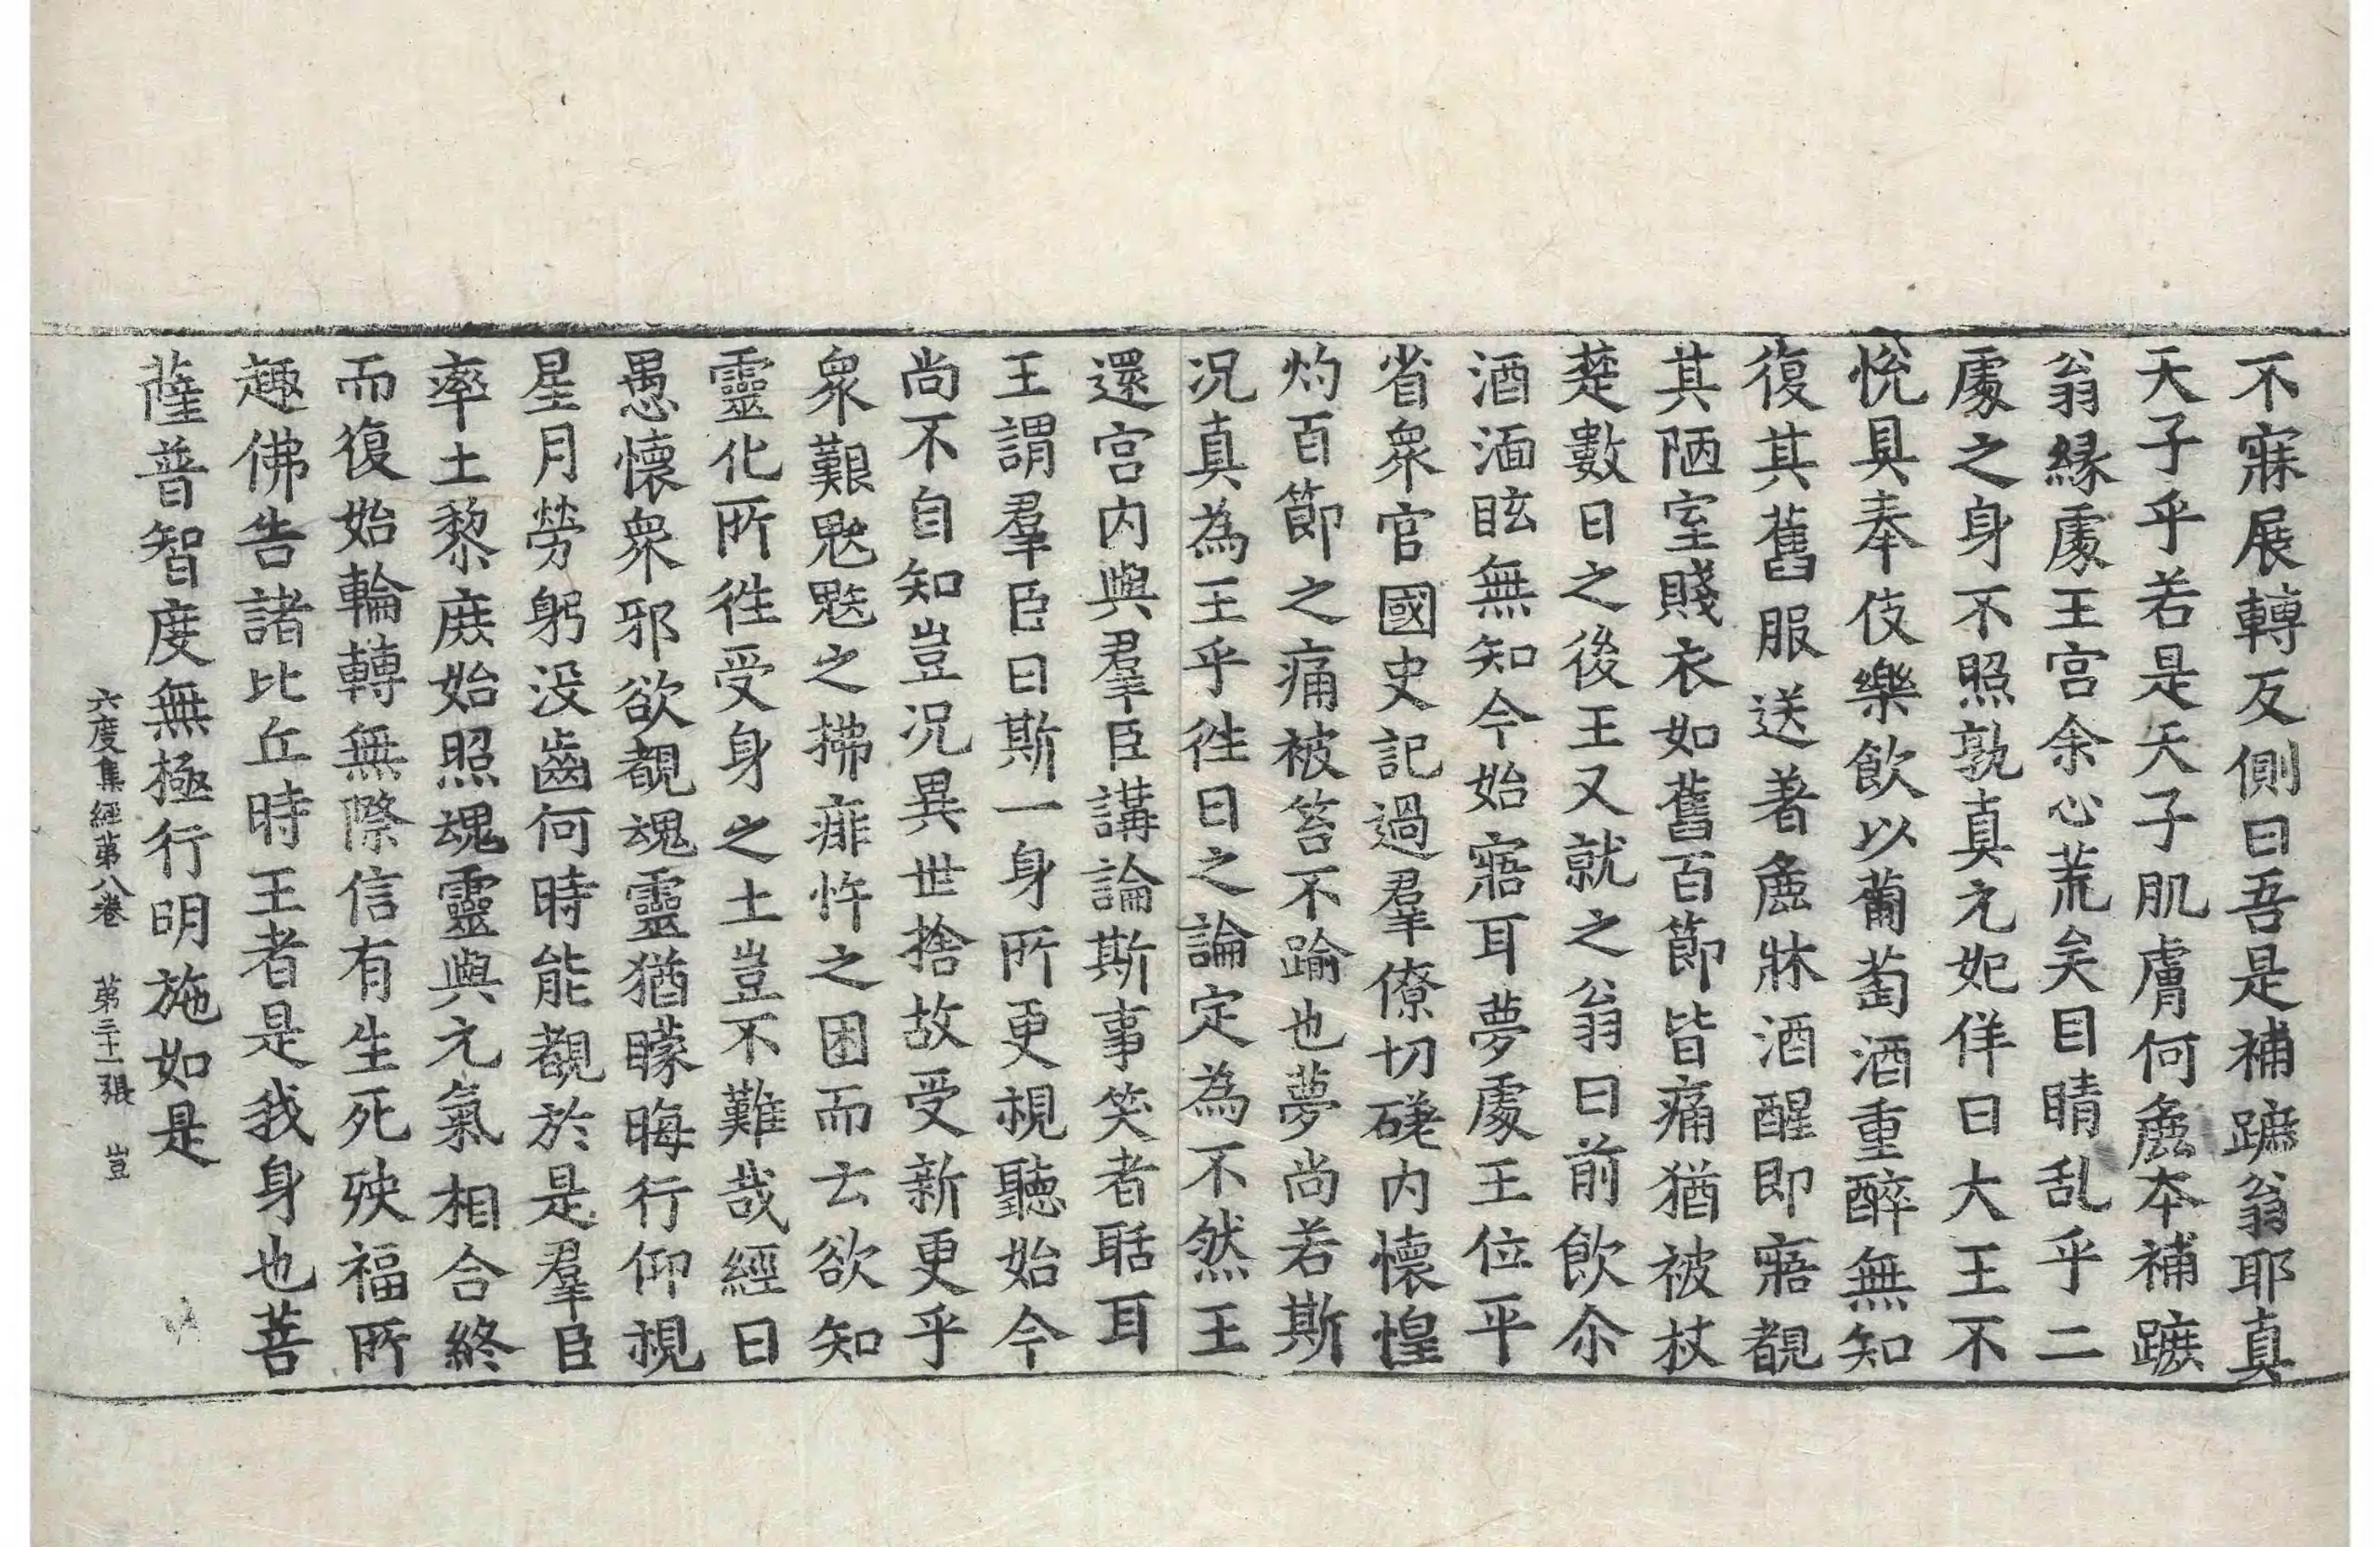 不寐展轉反側曰吾是補蹠翁耶真
天子乎若是天子肌膚何麁本補蹠
翁緣處王宮余心荒矣目睛乱乎二
處之身不照孰真元妃佯曰大王不
悅具奉伎樂飲以葡萄酒重醉無知
復其舊服送著麁牀酒醒即寤覩
其陋室賤衣如舊百節皆痛猶被杖
楚數日之後王又就之翁曰前飲尒
酒湎眩無知今始寤耳夢處王位平
省衆官國史記過羣僚切磋内懷惶
灼百節之痛被笞不踰也夢尚若斯
况真為王乎徃日之論定為不然王
還宮内與羣臣講論斯事笑者聒耳
王謂羣臣曰斯一身所更視聽始今
尚不自知豈况異世捨故受新更乎
衆艱魃魅之拂痱忤之困而云欲知
靈化所徃受身之土豈不難哉經曰
愚懷衆邪欲覩魂靈猶矇晦行仰視
星月勞躬没齒何時能覩於是羣臣
率土黎庶始照魂靈與元氣相合終
而復始輪轉無際信有生死殃福所
趣佛告諸比丘時王者是我身也菩
薩普智度無極行明施如是
六度集經第八卷 第二十一張 豈